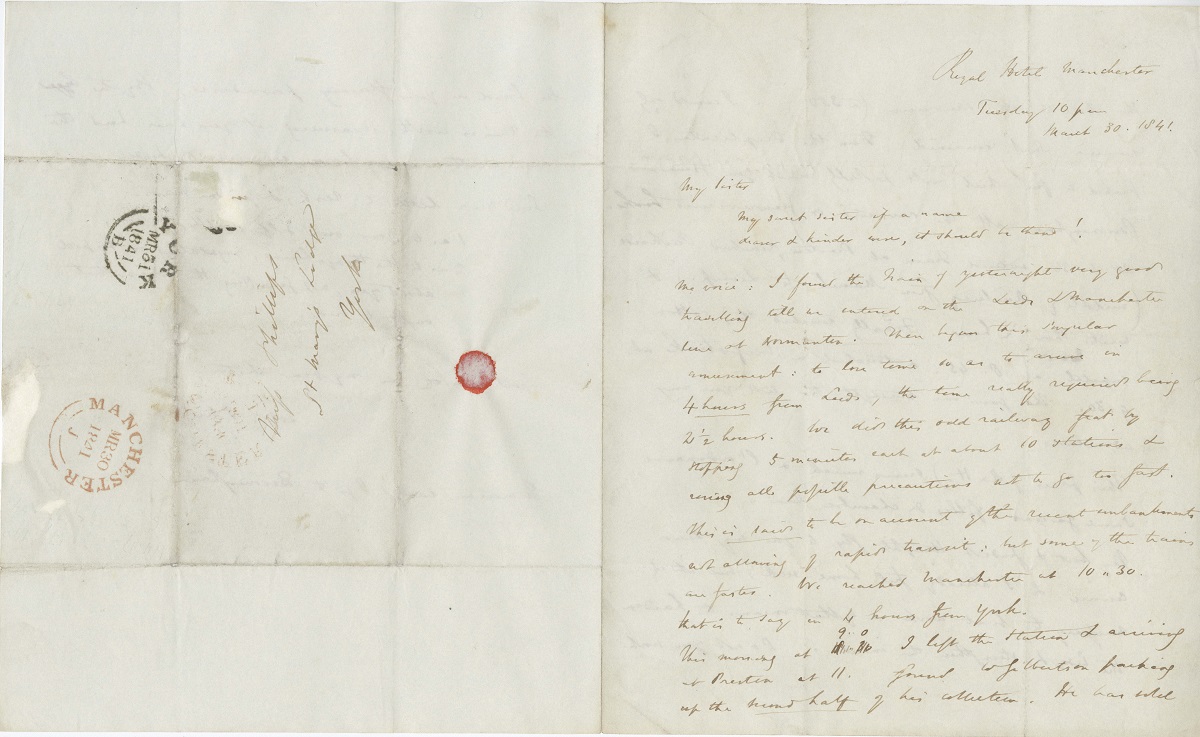 YORK
MR31
1841
B
MANCHESTER
MR30
1841
J
Miss Phillips
St Mary's Lodge
York
Royal Hotel Manchester
Tuesday 10 pm
March 30. 1841.
My Sister
My sweet sister if a name
dearer & kinder were, it should be thine!
Me voici: I found the train of yesternight very good
travelling till we entered on the Leeds & Manchester
line at Normanton. Then began this singular
amusement: to lose time so as to arrive in
4 hours from Leeds, the time really required being
2 1/2 hours. We did this odd railway feat by
stopping 5 minutes each at about 10 stations &
using all possible precautions not to go too fast.
This is said to be on account of the recent embankments
not allowing of rapid transit: but some of the trains
are faster. We reached Manchester at 10 " 30.
that is to say in 4 hours from York.
9.0
This morning at I left the station & arriving
at Preston at 11. found W Gilbertson packing
up the second half of his collection. He has sold